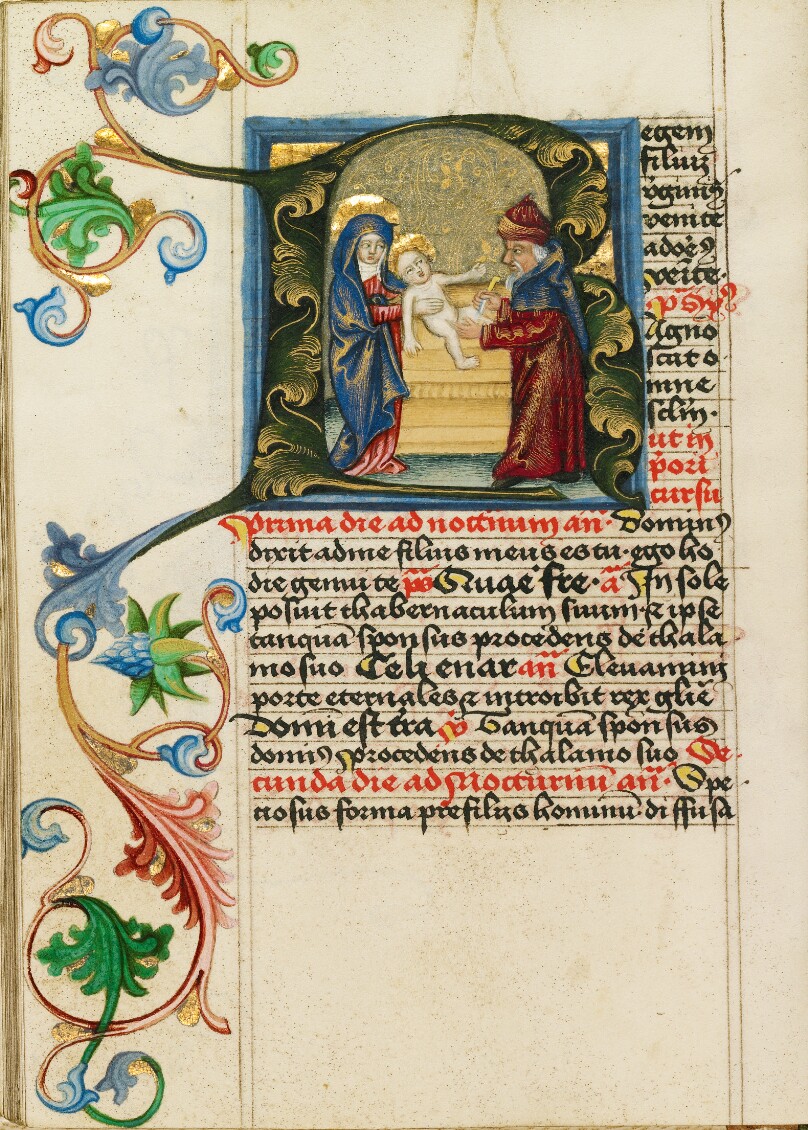 R
egem
filiū
v̄ginis
venite
adore9
venite·
p̄s
Agno
scat o
mne
sclm̄·
ut in
p̄ori
cursu
Prima die ad nocturnum an̄· Dominus
dixit ad me filius meus es tu· ego ho
die genui te p̄s Quare fre· a̅ In sole
posuit thabernaculum suum· & ipse
tanquā sponsus procedens de thala
mo suo Celi enar an̄ Elevamini
porte eternales & introibit rex glīe
Domi est tra v̄ Tanquā sponsus
domin9 procedens de thalamo suo Se
cunda die ad Nocturnū an̄· Spe
ciosus forma pre filijs hominū· diffusa